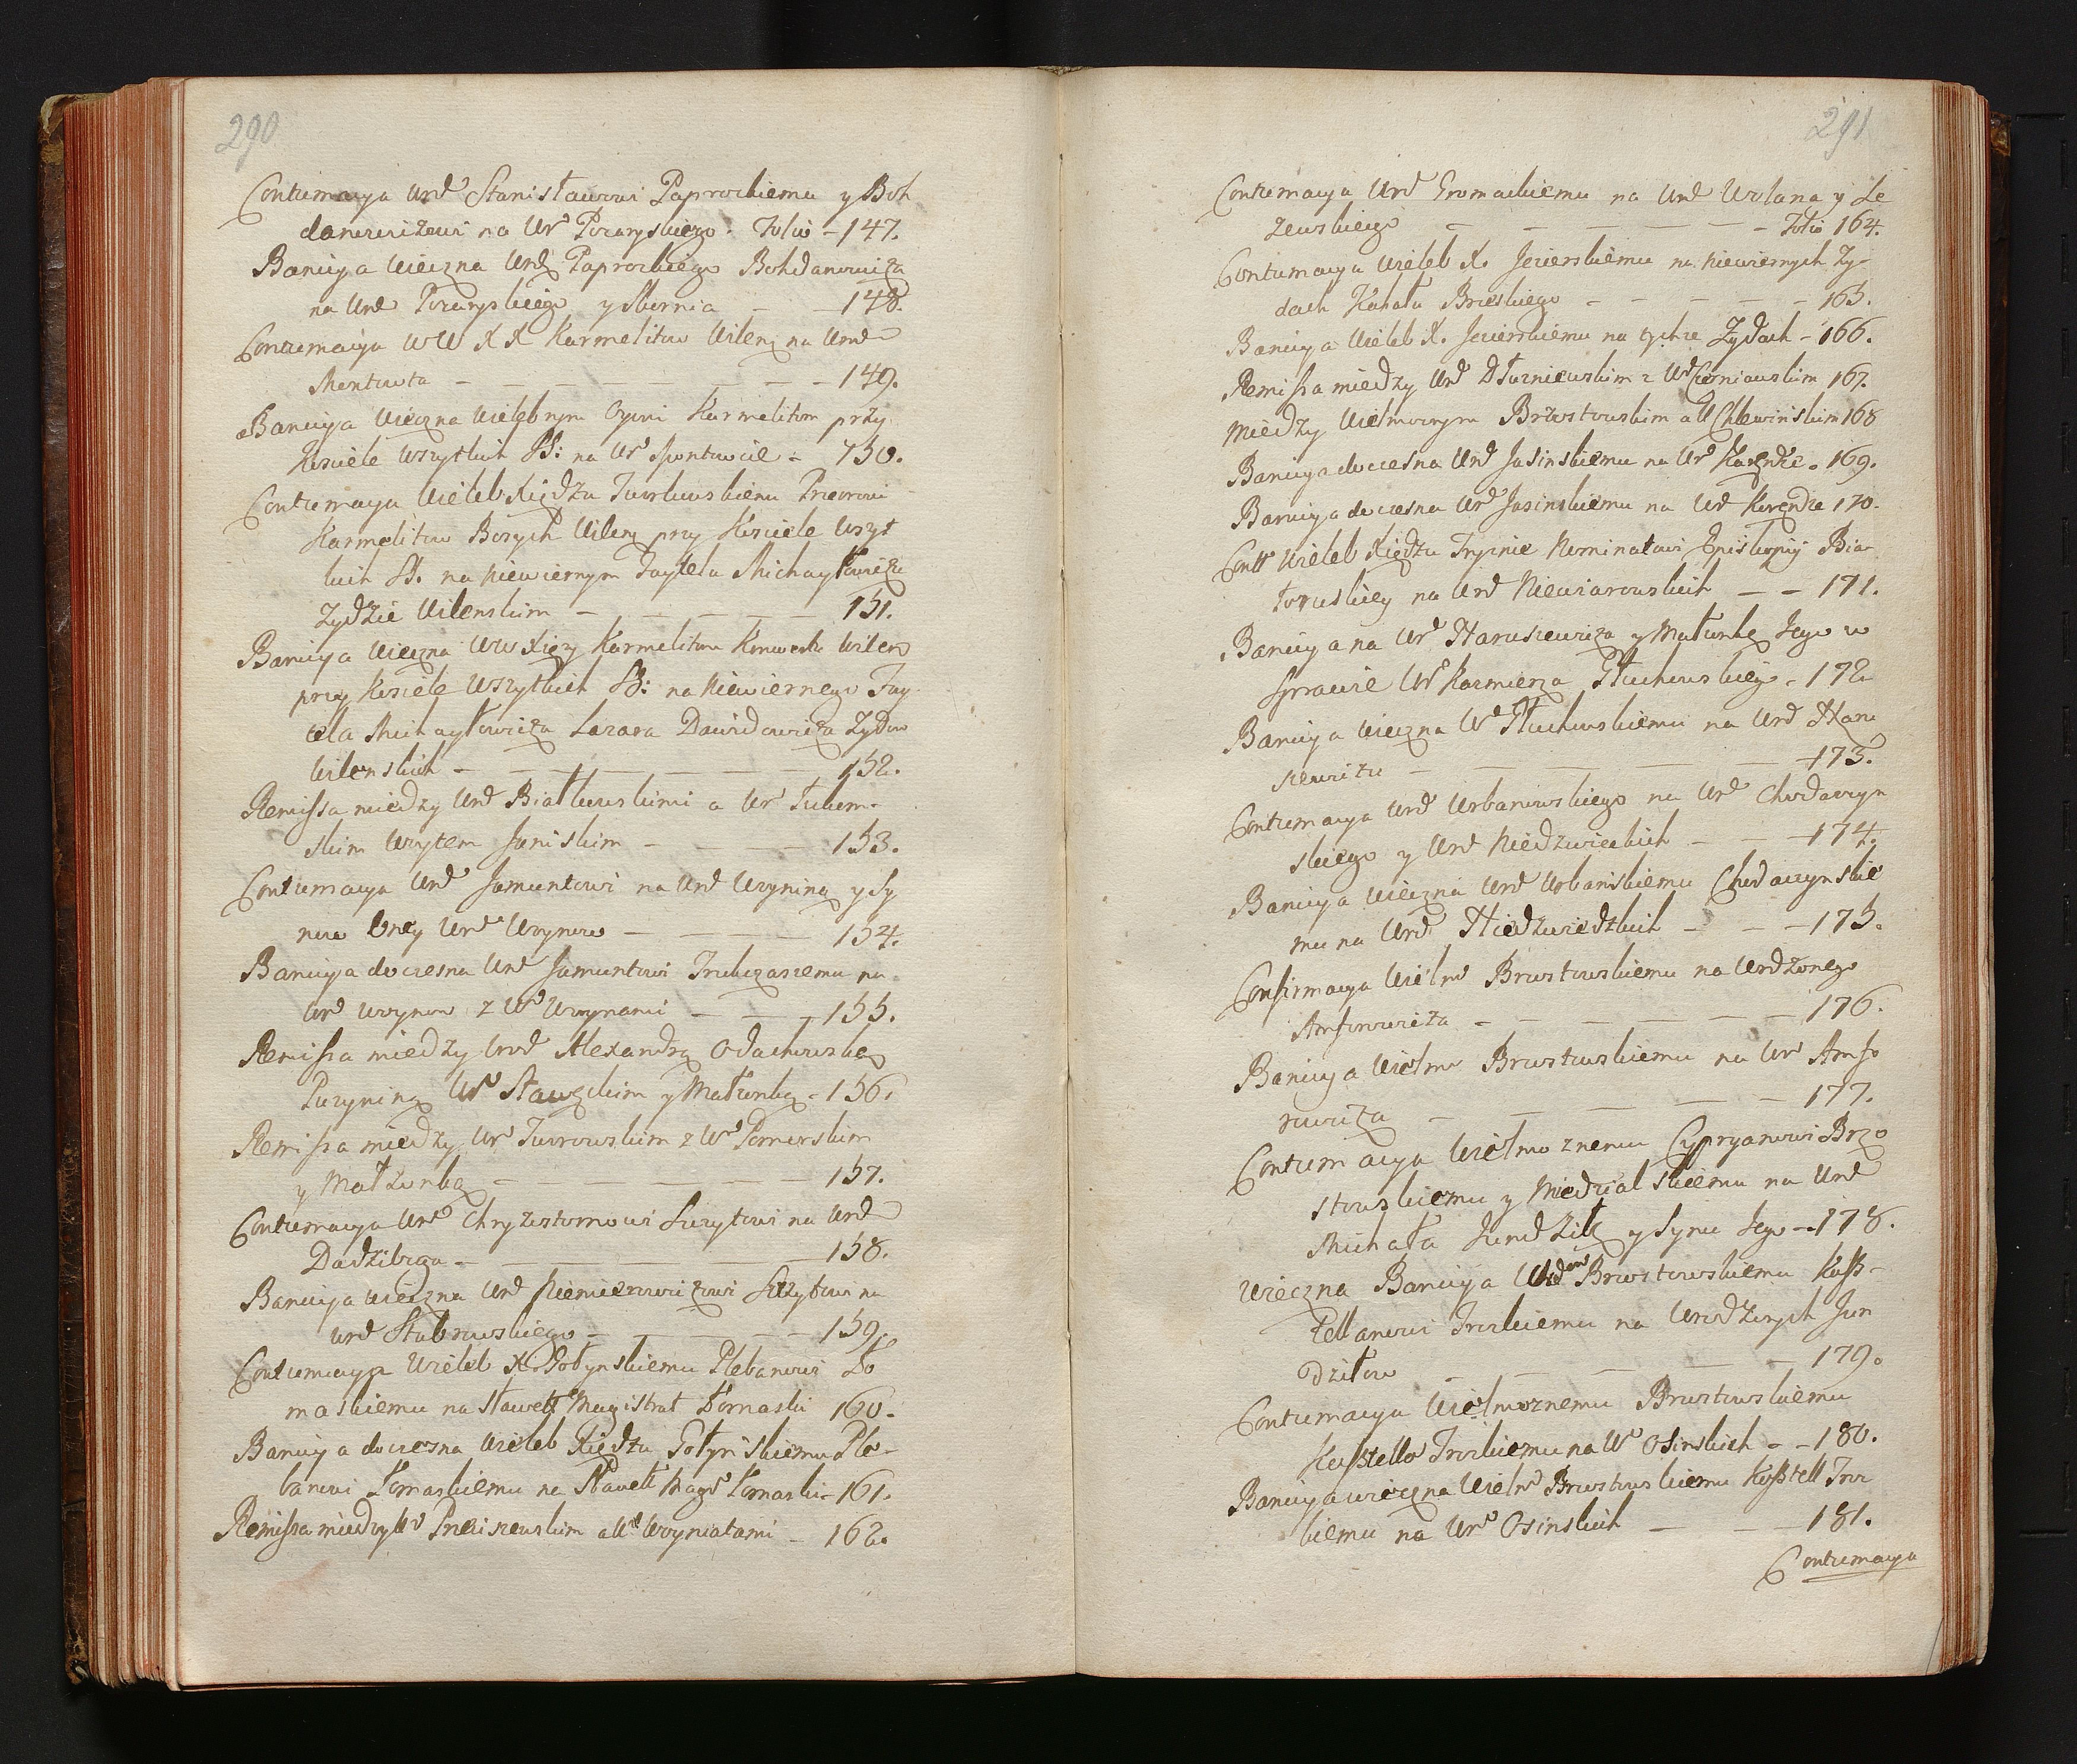 290
Contumacya Urd Stanisławowi Paprockiemu y Boh
danowiczowi na Ur Pozaryskiego. Folio - 147.
Banicya wieczna Urd Paprockiego Bohdanowicza
na Urd Pozaryskiego y Sbornia - - 148.
Contumacya WW XX Karmelitow Wilen na Urod
Montowta - - - - - - - - 149.
Banicya wieczna Wielebnym Oycom Karmelitom przy
Kosciele Wszytkich SS: na Ur Montowcie - 150.
Contumacya Wieleb Xiędzu Przeorowi
Karmelitow Bosych Wilen przy Kosciele Wszyt
kich SS. na Niewiernym Faytelu Michayłowiczu
Zydzie Wilenskim - - - - - 151.
Banicya wieczna WW Xięzy Karmelitow Konwentu Wilen
przy Kosciele Wszytkich SS: na Niewiernego Fay
tela Michayłowicza Lazara Dawidowicza Zydow
Wilenskich - - - - - - 152.
Remissa miedzy Urd Białkowskimi a Ur
skim Woytem Janiskim - - - - 153.
Contumacya Urd Jamuntowi na Urd Woyniną y Sy
now Oney Urd Woynow - - - - 154.
Banicya doczesna Urd Jamuntowi na
Urd Woynow z Ur Woynami - - - 155.
Remissa miedzy Urod Alexandrą Odachowską
Puzyniną Ur y Małzonką - 156.
Remissa miedzy Ur Turrowskim z Ur Pomorskim
y Małzonką - - - - - - 157.
Contumacya Urd Chryzostomowi Szczytowi na Urod
Dadziboga - - - - - - 158.
Banicya wieczna Urd Niemierowiczowi Szczytowi na
Urd Stabrowskiego - - - - - 159.
Contumacya Wieleb X. Gołynskiemu Plebanowi Ło
maskiemu na Sławett Magistrat Łomaski 160.
Banicya doczesna Wieleb Xiędzu Gołynskiemu Ple-
banowi Łomaskiemu na Sławett Mag Łomaski - 161.
Remissa miedzy Ur Preciszewskim a Ur Woyniatami - 162.
291
Contumacya Urd Gromackiemu na Urd Wolana y Le
zewskiego - - - - - - Folio 164.
Contumacya Wieleb X. Jezierskiemu na Niewiernych Zy-
dach Kahału Brzeskiego - - - - - 165.
Banicya Wieleb X. Jezierskiemu na tychze Zydach - 166.
Remissa miedzy Urd Dłuzniewskim z Ur Czerniawskim 167.
Miedzy Wielmoznym Brzostowskim a Ur Chlewinskim 168
Banicya doczesna Urd Jasinskiemu na Ur Karęndze. 169.
Banicya doczesna Ur Jasinskiemu na Urd Kerendze 170.
Contt Wieleb Xiędzu Tryznie Nominatowi Episkopij Bia-
łoruskiey na Urd Niewiarowskich - - 171.
Banicya na Ur Haruszewicza y Małzonkę Jego w
Sprawie Ur Kazmierza Głuchowskiego - 172
Banicya wieczna Ur Głuchowskiemu na Urd Haru
szewiczu - - - - - 173.
Contumacya Urd Urbanowskiego na Urd Chodaczyn
skiego y Urd Niedzwieckich - - - 174.
Banicya wieczna Urd Urbanskiemu Chodaczynskie
mu na Urd Niedzwiedzkich - - - 175.
Confirmacya Wielm Brzostowskiemu na Urodzonego
Amforowicza - - - - - - 176.
Banicya Wielm Brzostowskiemu na Ur Amfo
rowicza - - - - - 177.
Contumacya Wielmoznemu Cypryanowi Brzo
stowskiemu y Niedzialskiemu na Urd
Michała Jundziłę y Synu Jego - 178.
Wieczna Banicya Brzostowskiemu Kassz-
tellanowi Trockiemu na Urodzonych Jun
dziłow - - - - 179.
Contumacya Wielmoznemu Brzostowskiemu
Kasztello Trockiemu na Ur Osinskich - - 180.
Banicya wieczna Wielm Brzostowskiemu Kasztell Troc
kiemu na Ur Osinskich - - - 181.
Contumacya